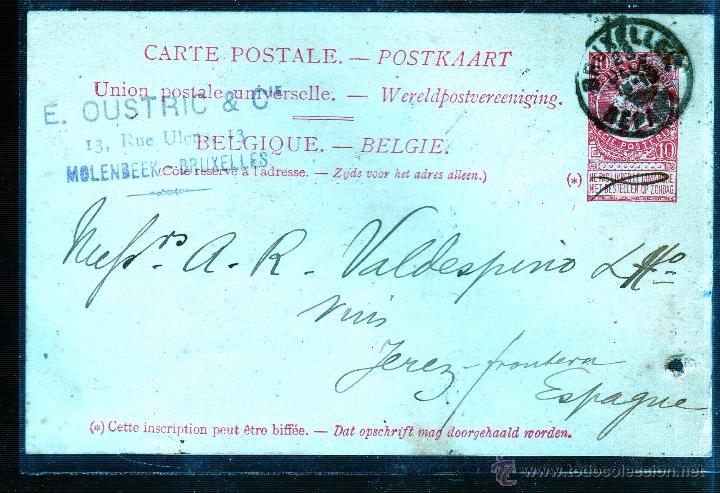 CARTE POSTALE. — POSTKAART
Union postale universelle. — Wereldpostvereeniging.
E. OUSTRIC & Cie
13, Rue Ulens, 13
BELGIQUE. — BELGIE.
MOLENBEEK - BRUXELLES
(Côté réservé à l'adresse. — Zijde voor het adres alleen.)
(*)
BRUXELLES
DEPART
10
10
NE PAS LIVRER LE DIMANCHE
NIET BESTELLEN OP ZONDAG.
Messrs A. R. Valdespino
vins
Jerez-frontera
Espagne
(*) Cette inscription peut être biffée. — Dat opschrift mag doorgehaald worden.
www.todocoleccion.net